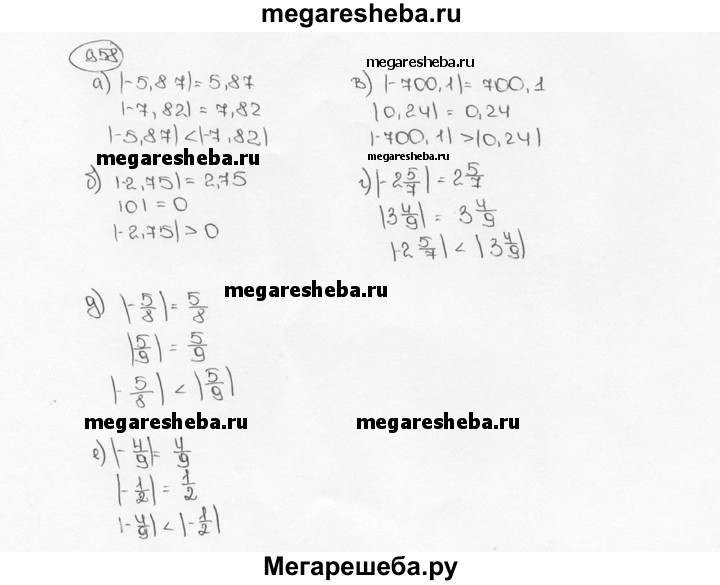 megaresheba.ru
958
а) |-5,87| = 5,87
|-7,82| = 7,82
|-5,87| < |-7,82|
megaresheba.ru
б) |-2,75| = 2,75
|0| = 0
|-2,75| > 0
megaresheba.ru
в) |-700,1| = 700,1
|0,24| = 0,24
|-700,1| > |0,24|
megaresheba.ru
г) |-2 5/7| = 2 5/7
|3 4/9| = 3 4/9
|-2 5/7| < |3 4/9|
megaresheba.ru
д) |-5/8| = 5/8
|5/9| = 5/9
|-5/8| < |5/9|
megaresheba.ru megaresheba.ru
е) |-4/9| = 4/9
|-1/2| = 1/2
|-4/9| < |-1/2|
Мегарешеба.ру